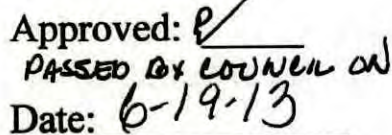 Approved:
PASSED BY COUNCIL ON
Date: 6-19-13